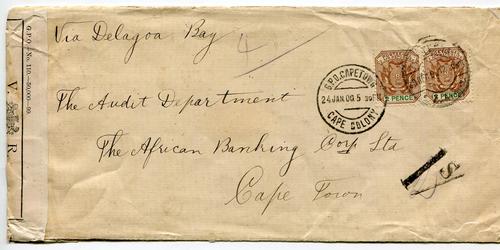 Via Delagoa Bay
4
The Audit Department
The African Banking Corp Ltd
Cape Town
G.P.O. CAPETOWN
24 JAN 00 5
CAPE COLONY
2 PENCE
2 PENCE
V R